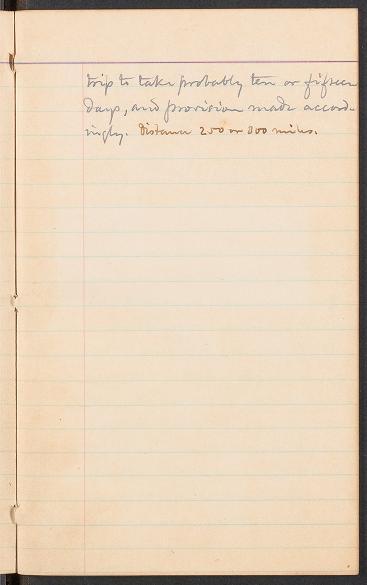 trip to take probably ten or fifteen
days, and provision made accord-
ingly. Distance 250 or 300 miles.